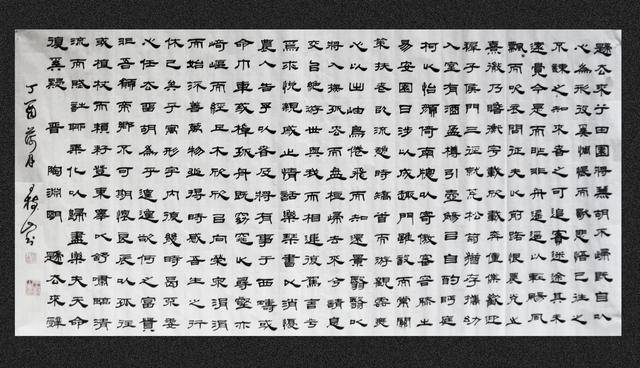 歸去來兮田園將蕪胡不歸既自以
心為形役奚惆悵而獨悲悟已往之
不諫之知來者之可追實迷途其未
遠覺今是而昨非舟遙遙以輕颺風
飄飄而吹衣問征夫以前路恨晨光之
熹微乃瞻衡宇載欣載奔僮僕歡迎
稚子候門三徑就荒松菊猶存攜幼
入室有酒盈樽引壺觴以自酌眄庭
柯以怡顏倚南窗以寄傲審容膝之
易安園日涉以成趣門雖設而常關
策扶老以流憩時矯首而遐觀雲無
心以出岫鳥倦飛而知還景翳翳以
將入撫孤松而盤桓歸去來兮請息
交以絕遊世與我而相違復駕言兮
焉求悅親戚之情話樂琴書以消憂
農人告予以春及將有事于西疇或
命巾車或棹孤舟既窈窕以尋壑亦
崎嶇而經丘木欣欣以向榮泉涓涓
而始流善萬物之得時感吾生之行
休已矣乎寓形宇內復幾時曷不委
心任去留胡為乎遑遑欲何之富貴
非吾願帝鄉不可期懷良辰以孤往
或植杖而耘耔登東皋以舒嘯臨清
流而賦詩聊乘化以歸盡樂夫天命
復奚疑 晉 陶淵明 歸去來辭
丁酉荷月